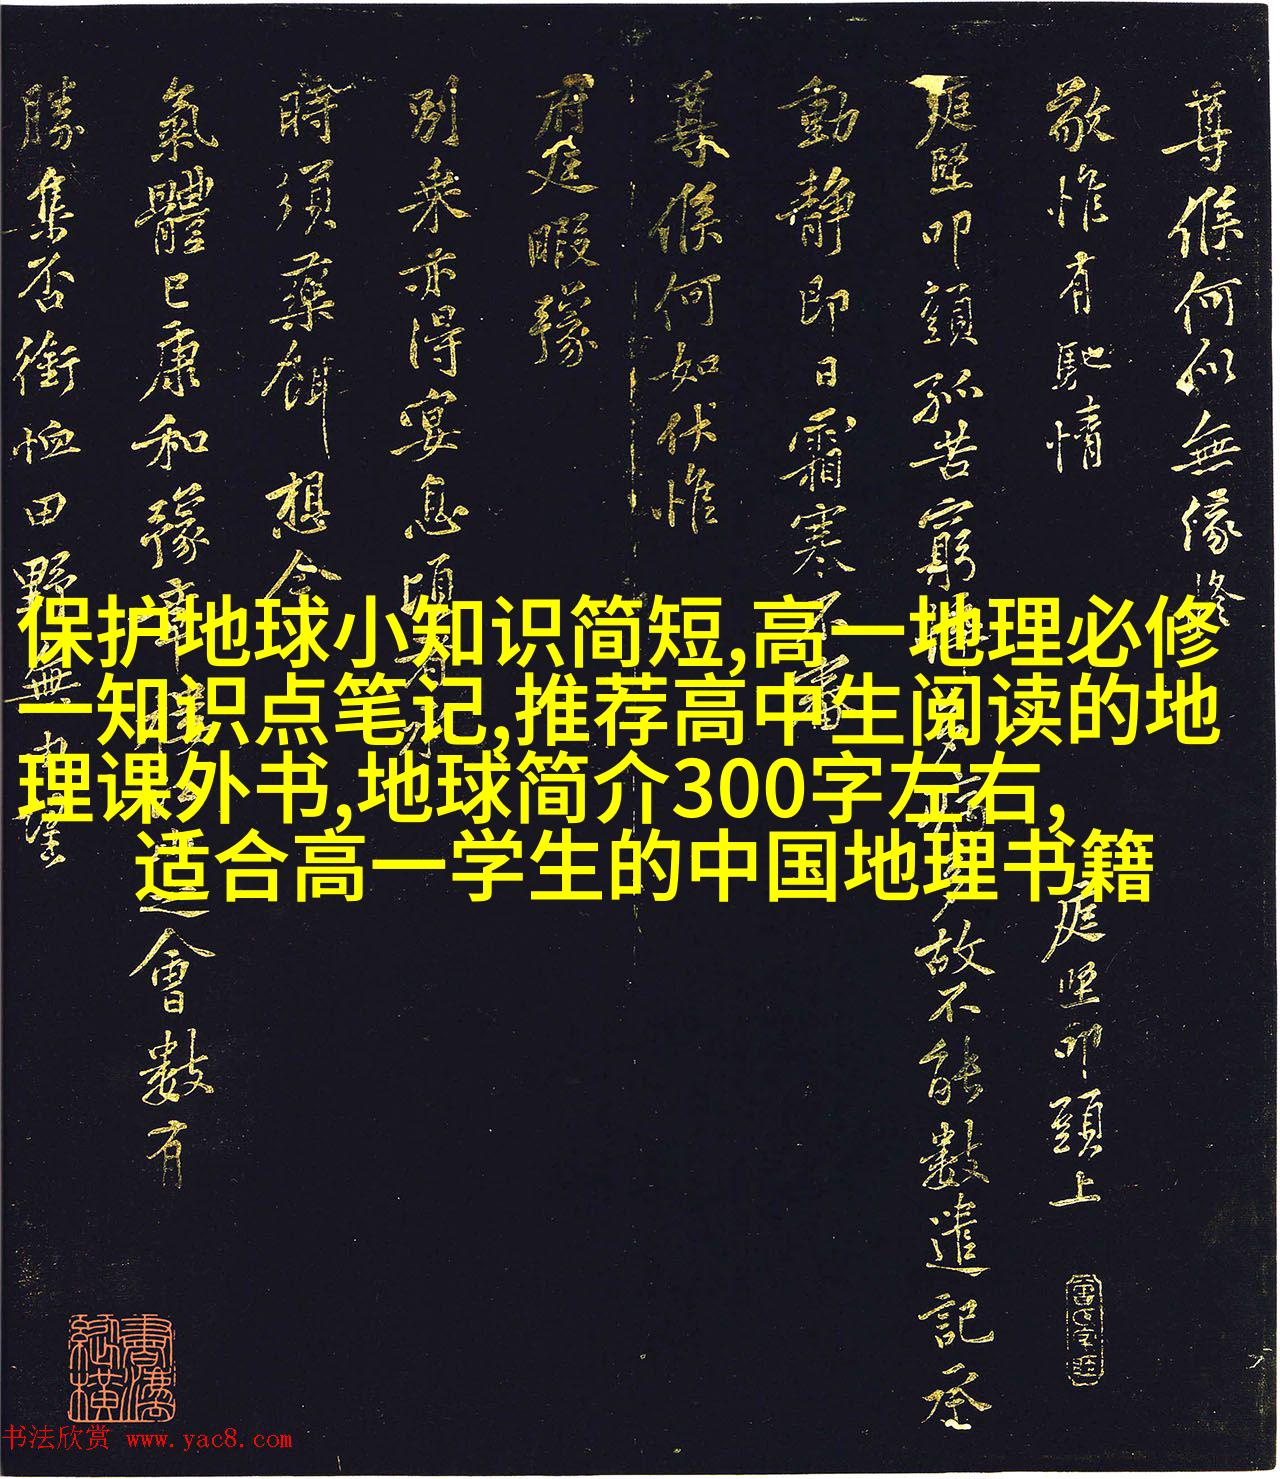 保护地球小知识简短,高一地理必修
一知识点笔记,推荐高中生阅读的地
理课外书,地球简介300字左右,
适合高一学生的中国地理书籍
尊候何似無緣修
敬惟有馳情
庭堅叩頭上
庭堅叩頭孤苦窮
故不能數遣記承
動靜即日霜寒不
尊候何如伏惟
府庭暇豫
別乘亦得宴息
時須藥餌想今
氣體已康和豫
會數有
勝集否銜恤田野無
書法欣赏 www.yac8.com